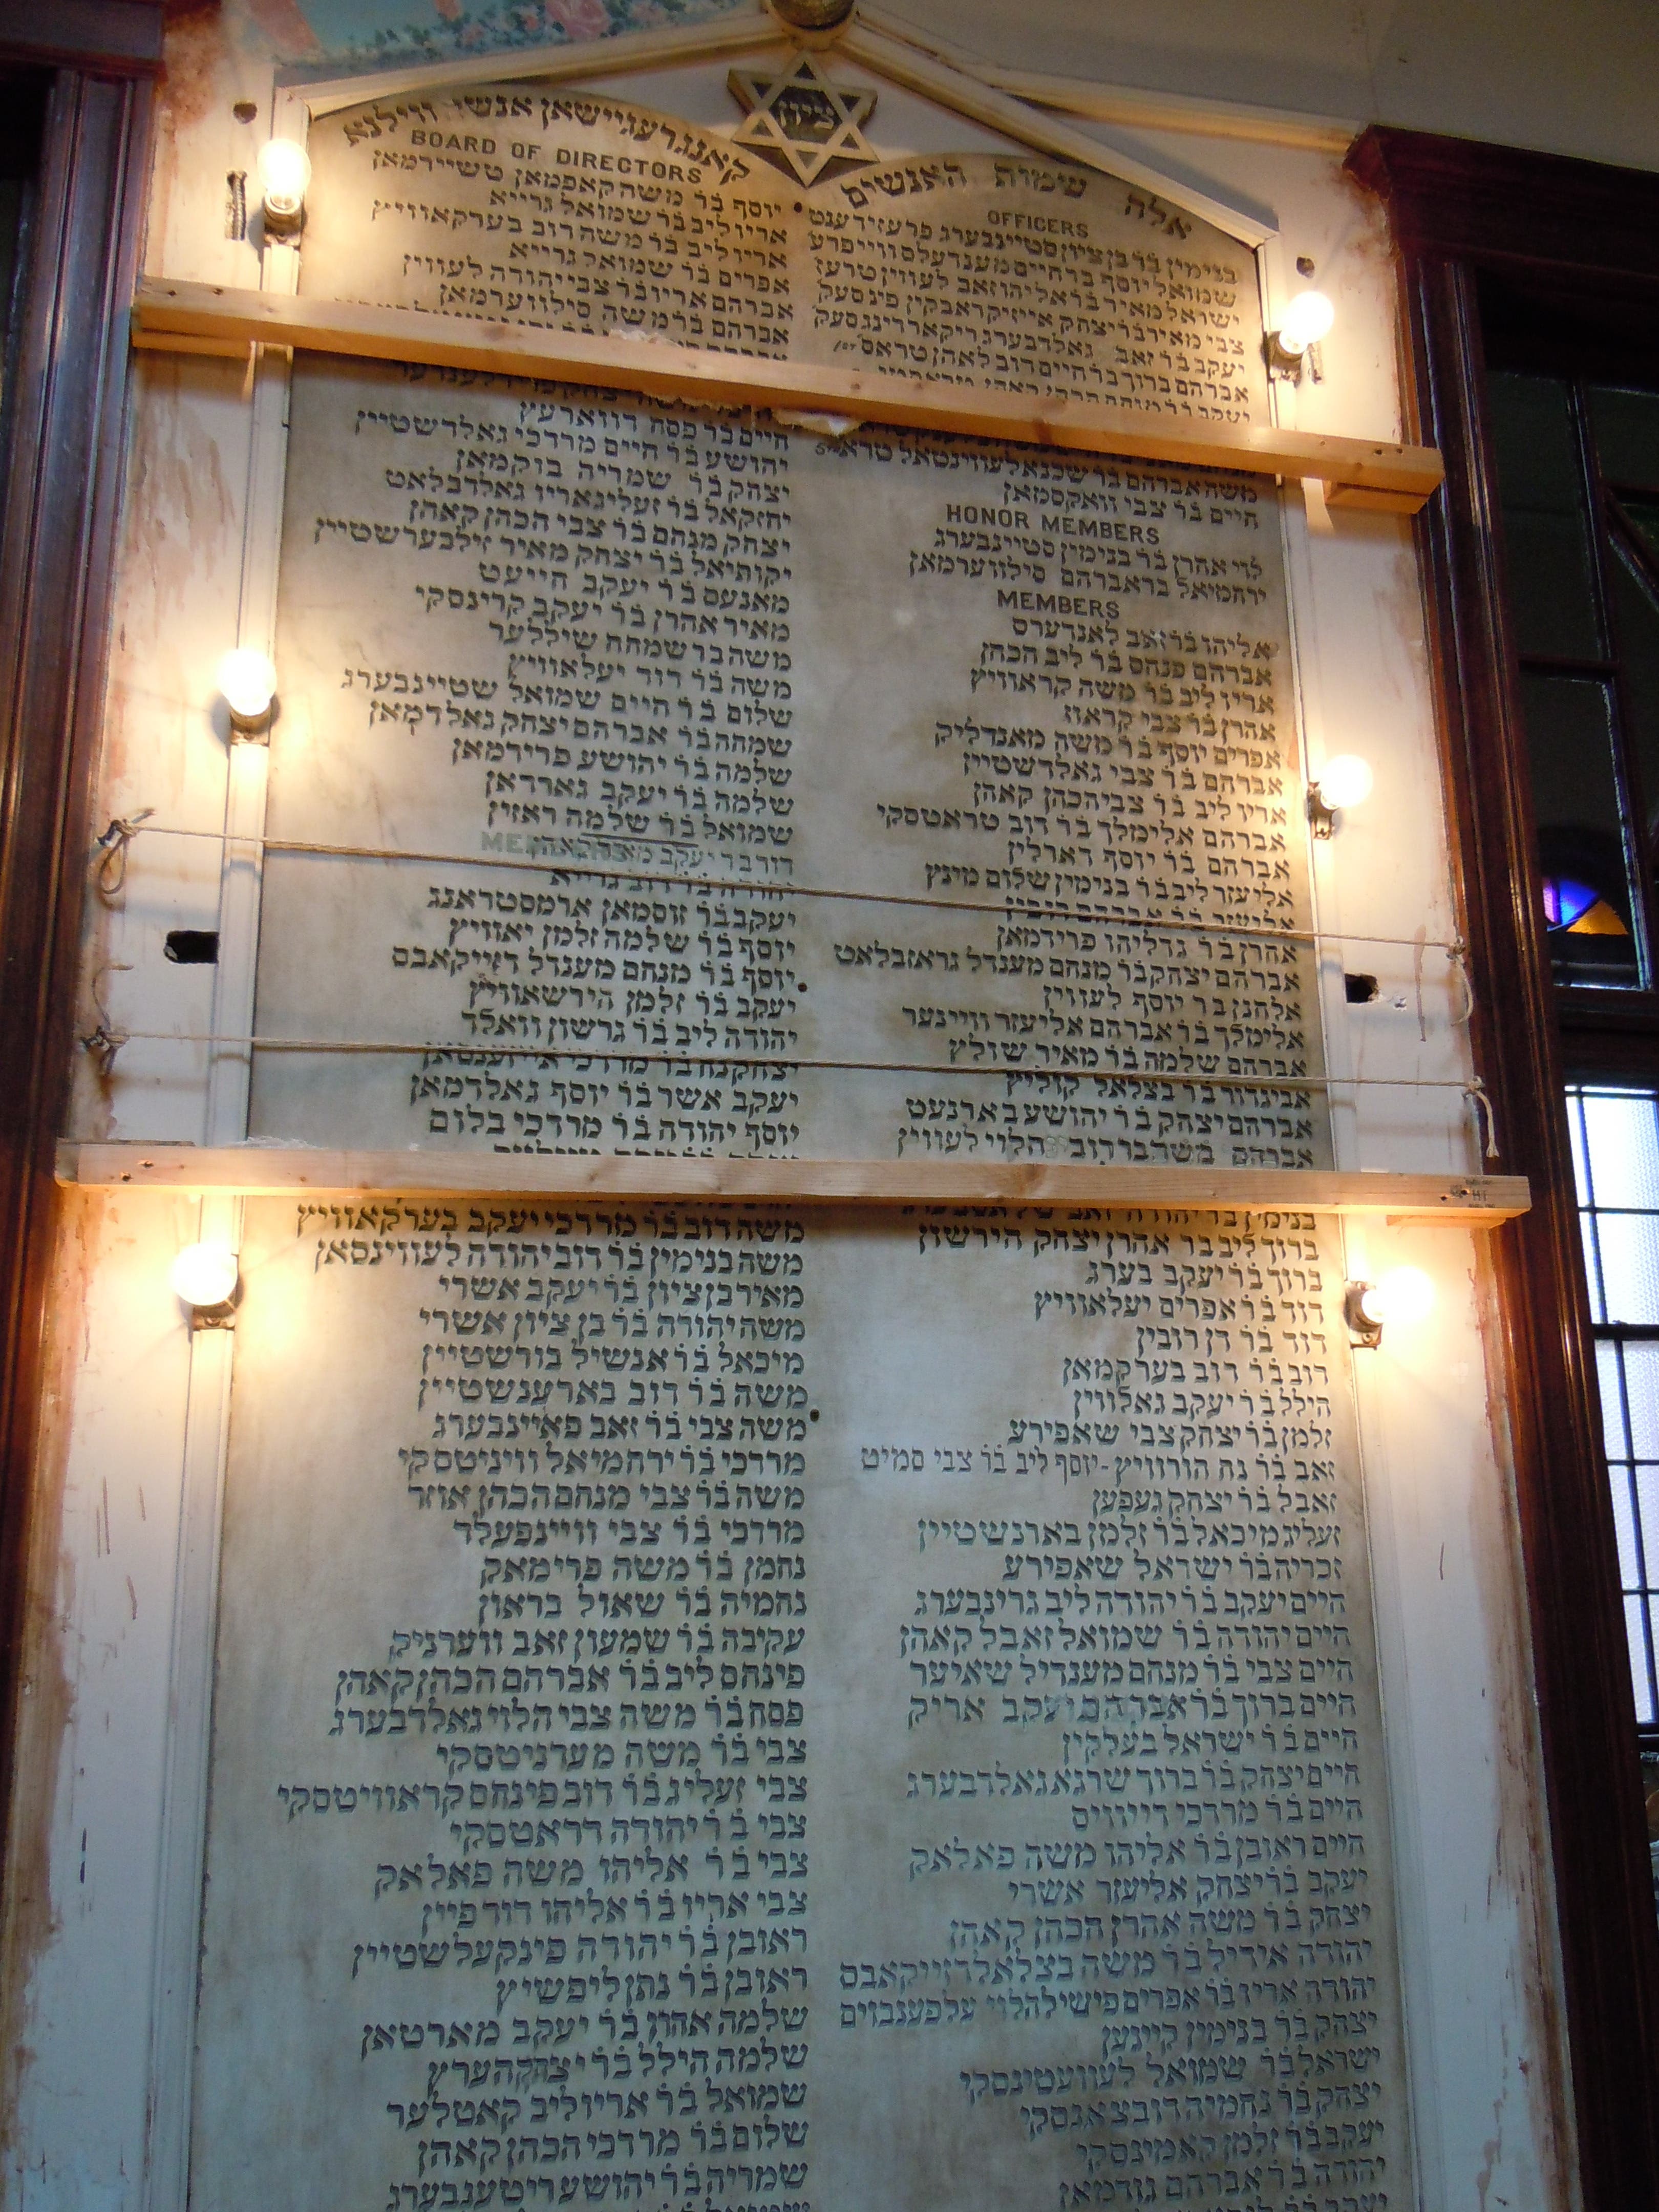 ציון
אלה שימות האנשים
OFFICERS
בנימין בר בן ציון סטיינבערג פרעזידענט
שמואל יוסף בר חיים מענדעלס ווייפרע
ישראל מאיר בר אליהו זאב לעווין טרעז
צבי מאיר בר יצחק אייזיק ראבקין פינ סעק
יעקב בר זאב גאלדבערג ריקארדינג סעק
אברהם ברוך בר חיים דוב לאהן טראס
משה אברהם בר שכנא לעווינטאל טראס
חיים בר צבי וואקסמאן
HONOR MEMBERS
לוי אהרן בר בנימין סטיינבערג
ירחמיאל בר אברהם סילווערמאן
MEMBERS
אליהו בר זאב לאנדערס
אברהם פנחס בר ליב הכהן
אריו ליב בר משה קראוויץ
אהרן בר צבי קראוז
אפרים יוסף בר משה מאנדליק
אברהם בר צבי גאלדשטיין
אריו ליב בר צבי הכהן קאהן
אברהם אלימלך בר דוב טראטסקי
אברהם בר יוסף דארלין
אליעזר ליב בר בנימין שלום מינץ
אליעזר בר אברהם
אהרן בר גדליהו פרידמאן
אברהם יצחק בר מנחם מענדל גראזבלאט
אלחנן בר יוסף לעווין
אלימלך בר אברהם אליעזר וויינער
אברהם שלמה בר מאיר שולץ
אביגדור בר בצלאל קוליץ
אברהם יצחק בר יהושע בארנעט
אברהם משה בר דוב הלוי לעווין
בנימין בר יהודה זאב
ברוך ליב בר אהרן יצחק הירשון
ברוך בר יעקב בערג
דוד בר אפרים יעלאוויץ
דוד בר דן רובין
דוב בר דוב בערקמאן
הילל בר יעקב גאלווין
זלמן בר יצחק צבי שאפירע
זאב בר נח הורוויץ - יוסף ליב בר צבי סמיט
זאבל בר יצחק געפען
זעליג מיכאל בר זלמן בארנשטיין
זכריה בר ישראל שאפירע
חיים יעקב בר יהודה ליב גרינבערג
חיים יהודה בר שמואל זאבל קאהן
חיים צבי בר מנחם מענדיל שאיער
חיים ברוך בר אברהם יעקב אריק
חיים בר ישראל בעלקין
חיים יצחק בר ברוך שרגא גאלדבערג
חיים בר מרדכי דייוויס
חיים ראובן בר אליהו משה פאלאק
יעקב בר יצחק אליעזר אשרי
יצחק בר משה אהרן הכהן קאהן
יהודה אידיל בר משה בצלאל דזייקאבס
יהודה אריו בר אפרים פישיל הלוי עלפענבוים
יצחק בר בנימין קייגען
ישראל בר שמואל לעוועטינסקי
יצחק בר נחמיה דובצאנסקי
יעקב בר זלמן קאמינסקי
יהודה בר אברהם גודמאן
קאנגרעגיישאן אנשי ווילנא
BOARD OF DIRECTORS
יוסף בר משה קאפמאן טשיירמאן
אריו ליב בר שמואל גרייא
אריו ליב בר משה דוב בערקאוויץ
אפרים בר שמואל גרייא
אברהם אריו בר צבי יהודה לעווין
אברהם בר משה סילווערמאן
חיים בר פסח דווארעץ
יהושע בר חיים מרדכי גאלדשטיין
יצחק בר שמריה בוקמאן
יחזקאל בר זעליג אריו גאלדבלאט
יצחק מנחם בר צבי הכהן קאהן
יקותיאל בר יצחק מאיר זילבערשטיין
מאנעס בר יעקב הייעט
מאיר אהרן בר יעקב קרינסקי
משה בר שמחה שיללער
משה בר דוד יעלאוויץ
שלום בר חיים שמואל שטיינבערג
שמחה בר אברהם יצחק גאלדמאן
שלמה בר יהושע פרידמאן
שלמה בר יעקב גארדאן
שמואל בר שלמה ראזין
דוד בר יעקב
יהודה בר דוב גרייא
יעקב בר זוסמאן ארמסטראנג
יוסף בר שלמה זלמן יאוויץ
יוסף בר מנחם מענדל דזייקאבס
יעקב בר זלמן הירשאוויץ
יהודה ליב בר גרשון וואלד
יצחק נח בר מרדכי אייזענסאן
יעקב אשר בר יוסף גאלדמאן
יוסף יהודה בר מרדכי בלום
משה דוב בר מרדכי יעקב בערקאוויץ
משה בנימין בר דוב יהודה לעווינסאן
מאיר בן ציון בר יעקב אשרי
משה יהודה בר בן ציון אשרי
מיכאל בר אנשיל בורשטיין
משה בר דוב בארענשטיין
משה צבי בר זאב פאיינבערג
מרדכי בר ירחמיאל וויניטסקי
משה בר צבי מנחם הכהן אוזר
מרדכי בר צבי וויינפעלד
נחמן בר משה פרימאק
נחמיה בר שאול בראון
עקיבה בר שמעון זאב ווערניק
פינחס ליב בר אברהם הכהן קאהן
פסח בר משה צבי הלוי גאלדבערג
צבי בר משה מערניטסקי
צבי זעליג בר דוב פינחס קראוויטסקי
צבי בר יהודה דראטסקי
צבי בר אליהו משה פאלאק
צבי אריו בר אליהו דודפיין
ראובן בר יהודה פינקעלשטיין
ראובן בר נתן ליפשיץ
שלמה אהרן בר יעקב מארטאן
שלמה הילל בר יצחק הערץ
שמואל בר אריו ליב קאטלער
שלום בר מרדכי הכהן קאהן
שמריה בר יהושע ריטענבערג